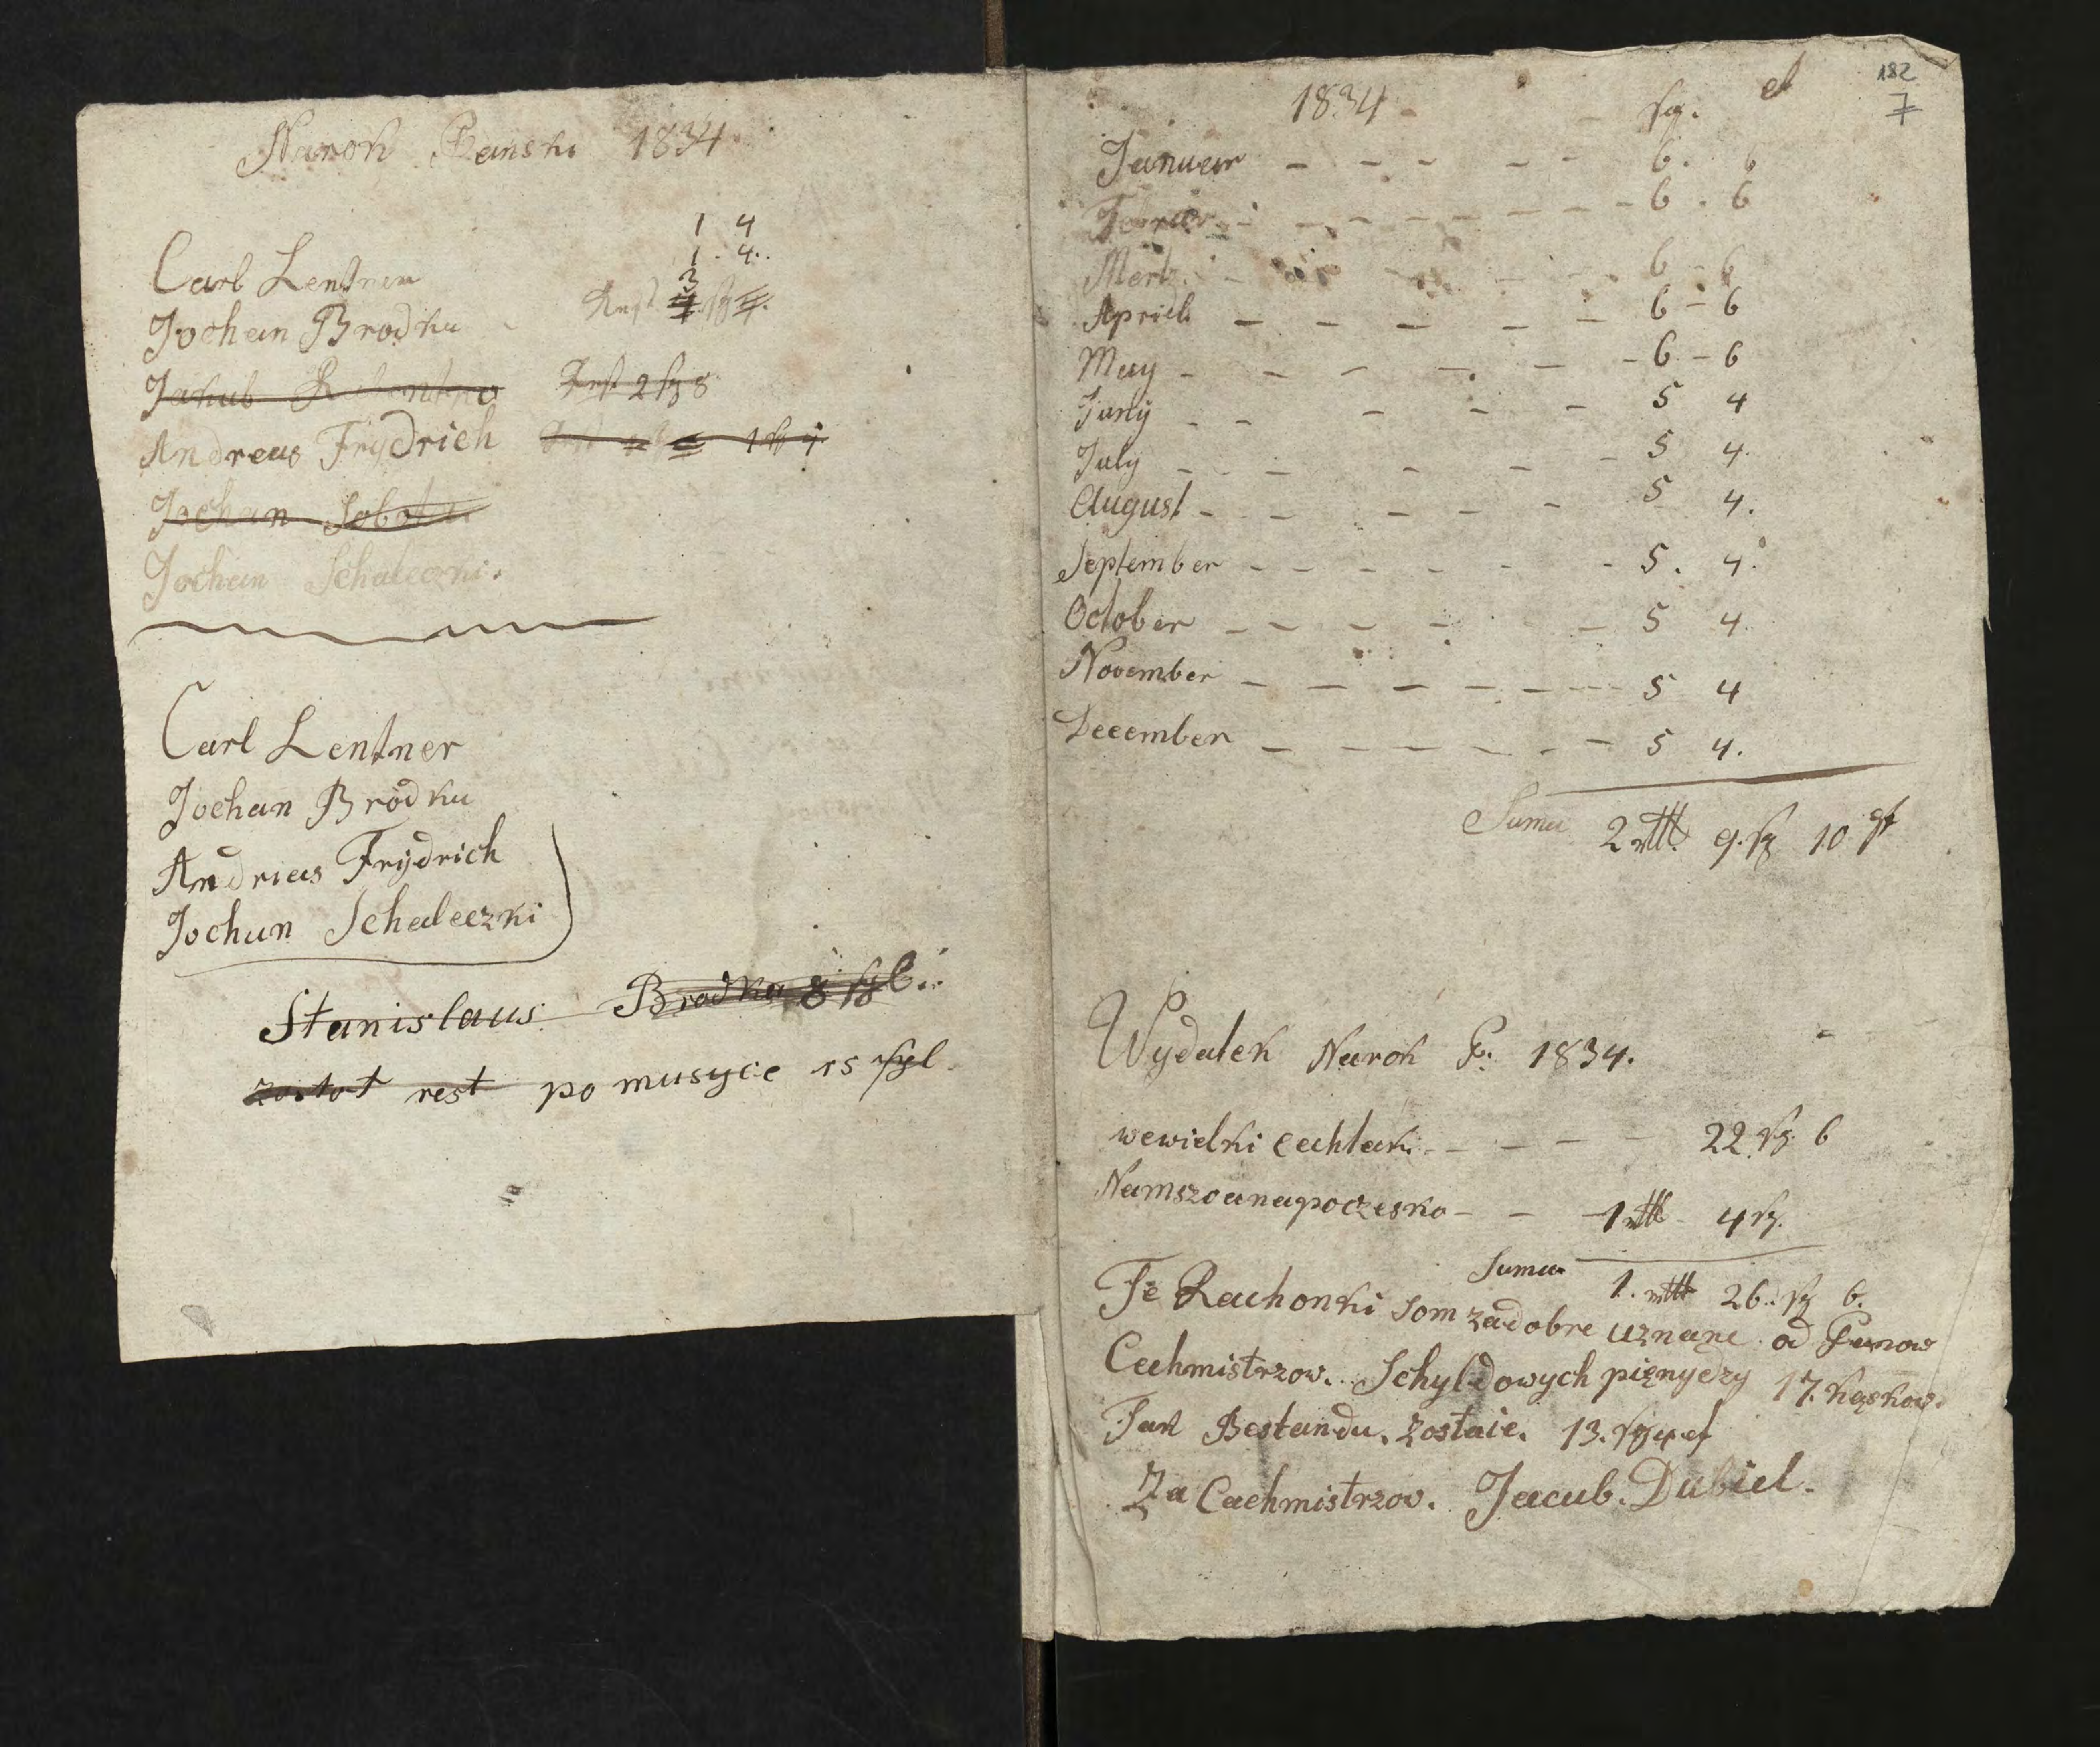 Narok Panski 1834
1 4
1. 4..
Carl Lentner
3
Jochan Brodka - Rest
Jakub Rest 2 sg 8
Andreas Frydrich 1 sg 4
Jochan Sobota
Jochan Schaleczki.
Carl Lentner
Jochan Brodka
Andrias Frydrich
Jochan Schaleczki
Stanislaus Brodka 8 sgl..
rest po musyce 15 sgl
182
7
1834 sg. d
Januar - - - - - 6. 6
Febrier - - - - - - - 6. 6
Mertz - - - - - 6 - 6
Aprill - - - - - 6 - 6
May - - - - - - 6 - 6
Juny - - - - - 5 4
July - - - - - 5 4.
August - - - - - 5 4.
September - - - - - - 5. 4.
October - - - - - 5 4.
November - - - - - - - 5 4
December - - - - - - - 5 4.
Suma 2 rttl. 9. sg 10 ₰
Wydatek Narok P: 1834.
wewielki cechlaki - - - - 22. sg. 6
Namszoanapoczesko - - - 1 rttl - 4 sg.
Suma 1. rttl 26.. sg 6.
Te Rachonki som zadobre uznane od Panow
Cechmistrzow. Schyldowych pięnyedzy 17. kąskow.
Tak Bestandu. zostaie. 13. sg 4 ₰
Za Cachmistrzov. Jacub. Dubiel.